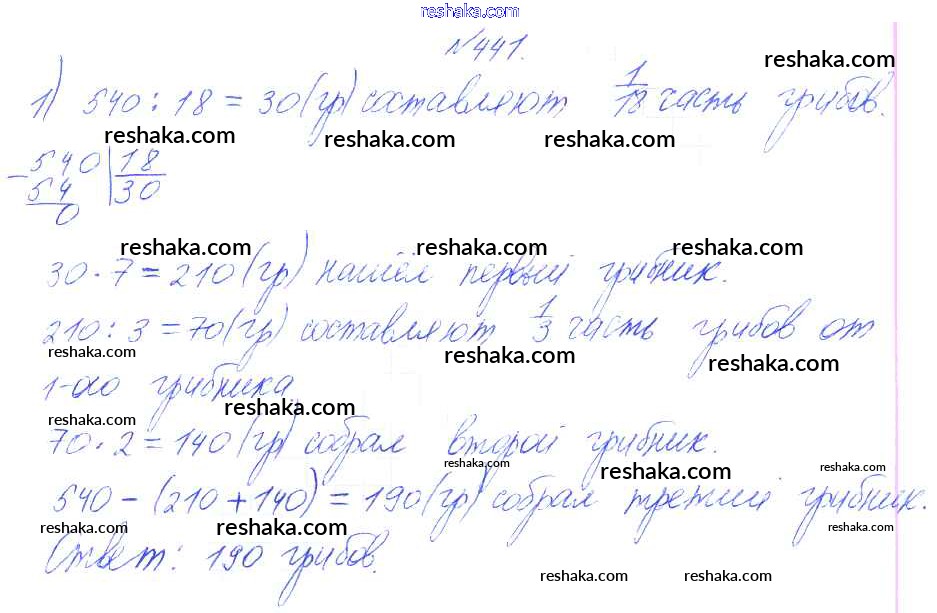 reshaka.com
№441.
reshaka.com
1) 540 : 18 = 30 (гр) составляют 1/18 часть грибов.
reshaka.com reshaka.com reshaka.com
540 | 18
54 | 30
0
reshaka.com reshaka.com reshaka.com
30 · 7 = 210 (гр) нашёл первый грибник.
210 : 3 = 70 (гр) составляют 1/3 часть грибов от
reshaka.com reshaka.com reshaka.com
1-ого грибника
reshaka.com reshaka.com
70 · 2 = 140 (гр) собрал второй грибник.
reshaka.com reshaka.com reshaka.com
540 - (210 + 140) = 190 (гр) собрал третий грибник.
reshaka.com reshaka.com reshaka.com
Ответ: 190 грибов.
reshaka.com reshaka.com